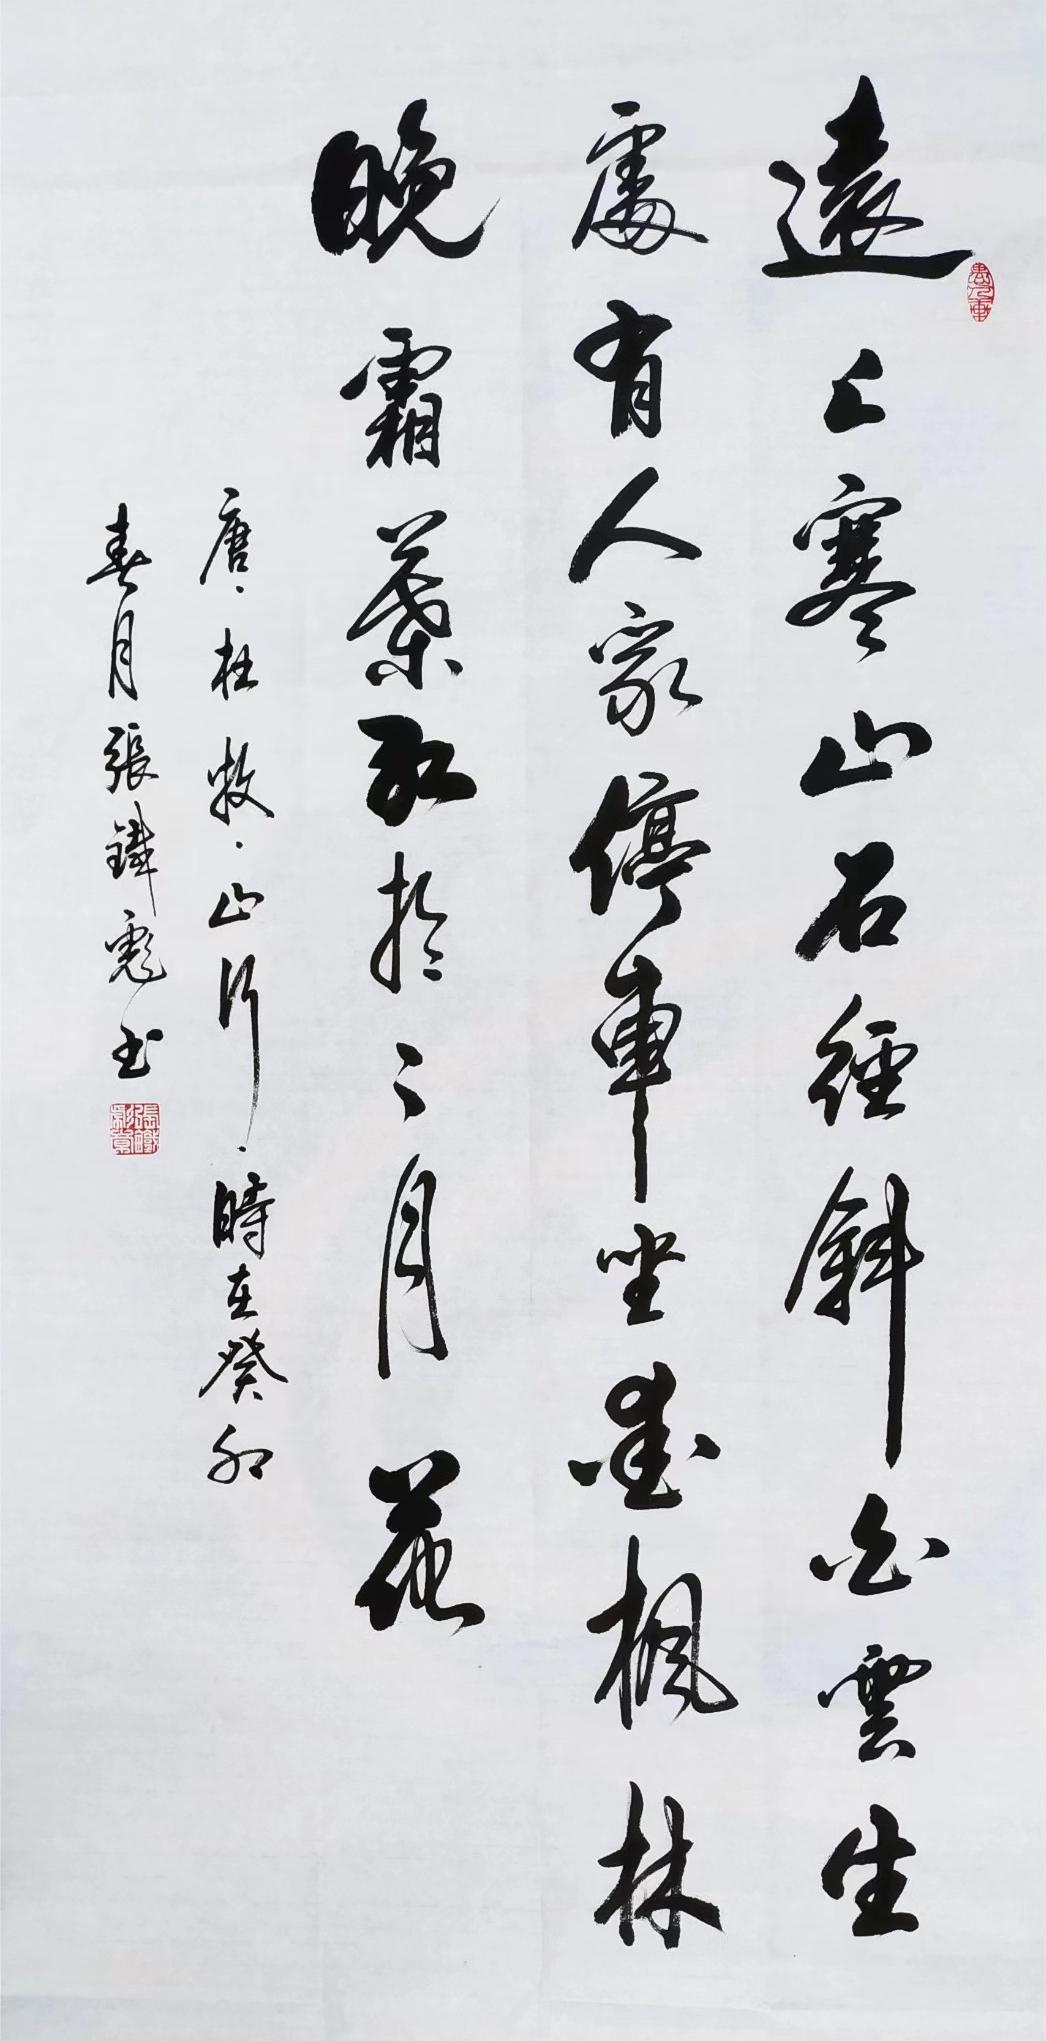 遠上寒山石徑斜白雲生
處有人家停車坐愛楓林
晚霜葉紅於二月花
唐·杜牧·山行·時在癸卯
春月張鐵彪书